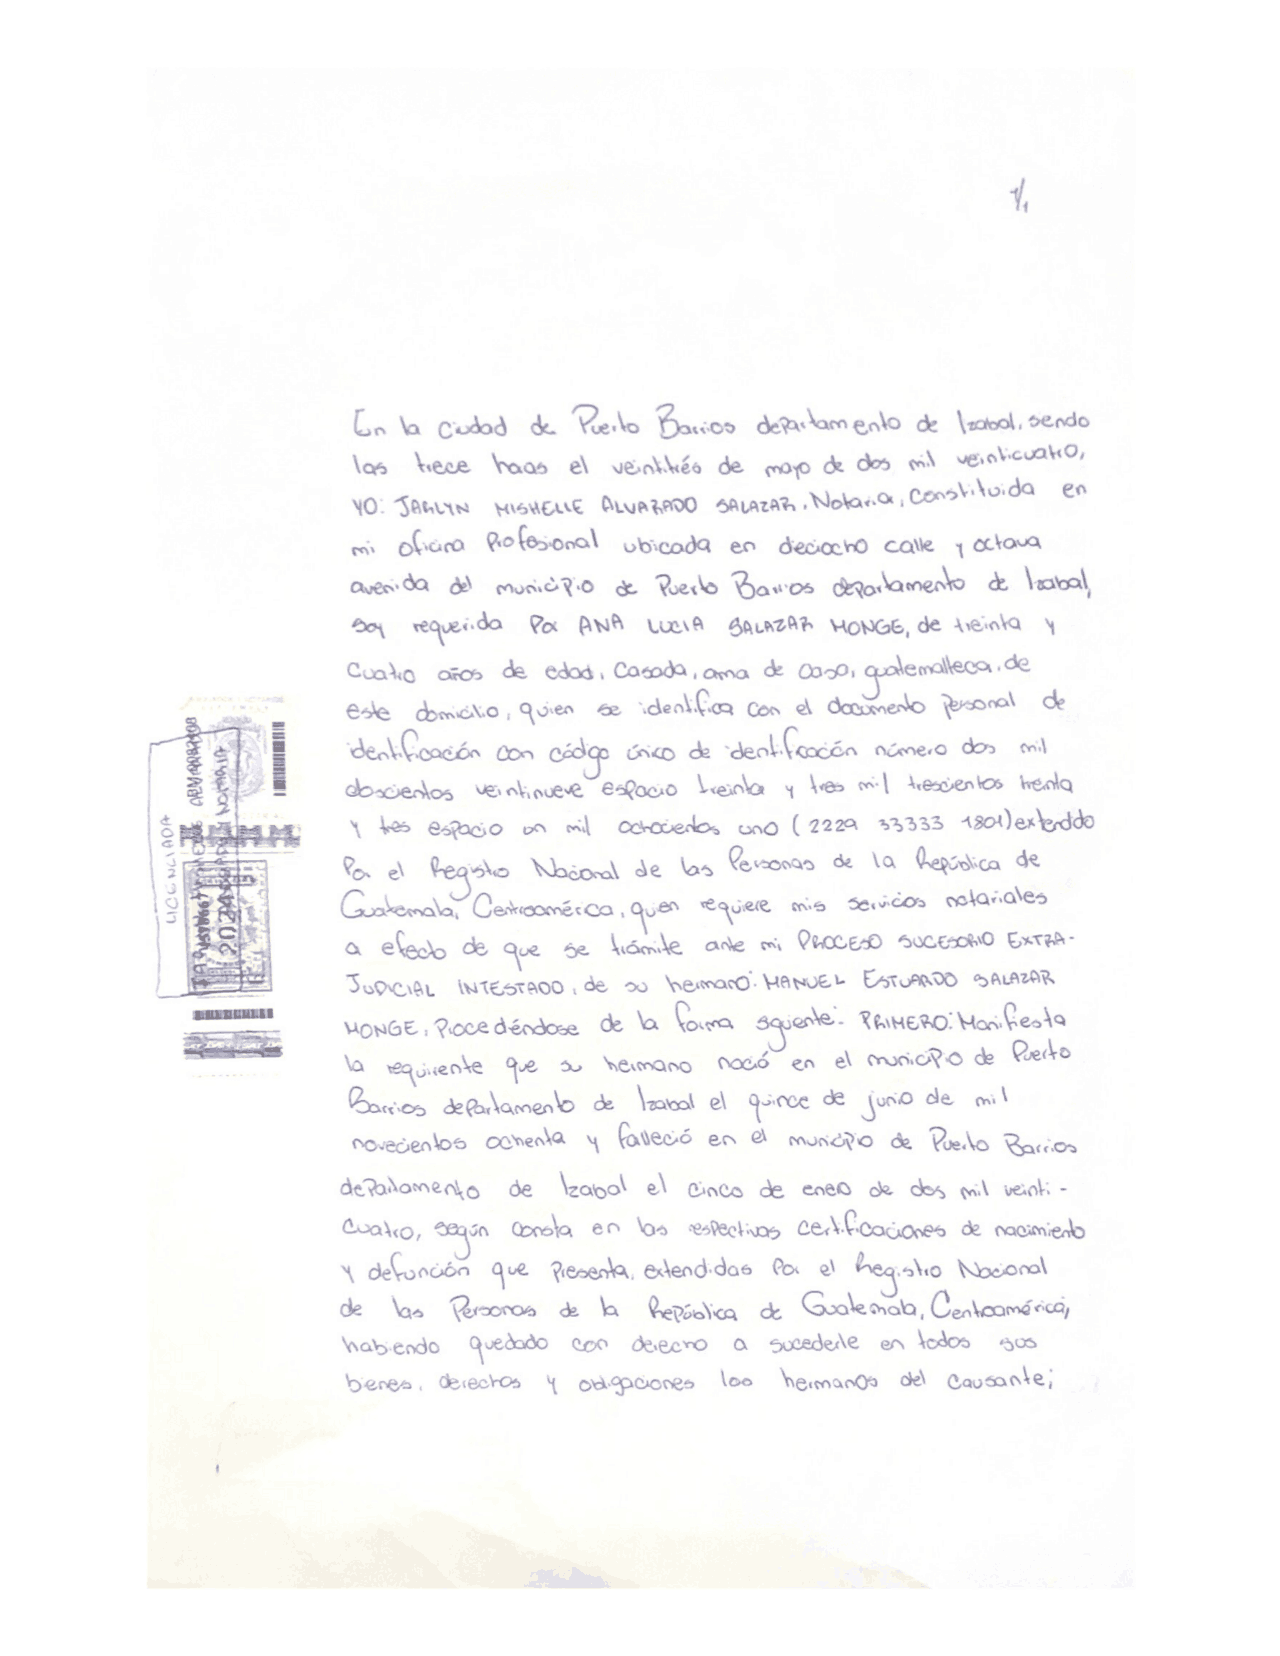 1/1
En la ciudad de Puerto Barrios departamento de Izabal, sendo
las trece haas el veintitrés de mayo de dos mil veinticuatro,
YO: JARLYN MISHELLE ALVARADO SALAZAR, Notaria, Constituida en
mi oficina Profesional ubicada en deciocho calle y octava
avenida del municipio de Puerto Barrios departamento de Izabal,
soy requerida Por ANA LUCIA SALAZAR MONGE, de treinta y
cuatro años de edad, Casada, ama de casa, guatemalteca, de
este domicilio, quien se identifica con el documento personal de
identificación con código único de identificación número dos mil
doscientos veintinueve espacio treinta y tres mil trescientos treinta
y tres espacio un mil ochocientos uno (2229 33333 1801) extendido
Por el Registro Nacional de las Personas de la República de
Guatemala, Centroamérica, quien requiere mis servicios notariales
a efecto de que se trámite ante mi PROCESO SUCESORIO EXTRA-
JUDICIAL INTESTADO, de su hermano: MANUEL ESTUARDO SALAZAR
MONGE, Procediéndose de la forma siguiente: PRIMERO: Manifiesta
la requirente que su hermano nació en el municipio de Puerto
Barrios departamento de Izabal el quince de junio de mil
novecientos ochenta y falleció en el municipio de Puerto Barrios
departamento de Izabal el cinco de enero de dos mil veinti-
cuatro, según consta en las respectivas certificaciones de nacimiento
y defunción que Presenta, extendidas Por el Registro Nacional
de las Personas de la República de Guatemala, Centroamérica,
habiendo quedado con derecho a sucederle en todos sus
bienes, derechos y obligaciones los hermanos del causante;
LICENCIADA
NOTARIA